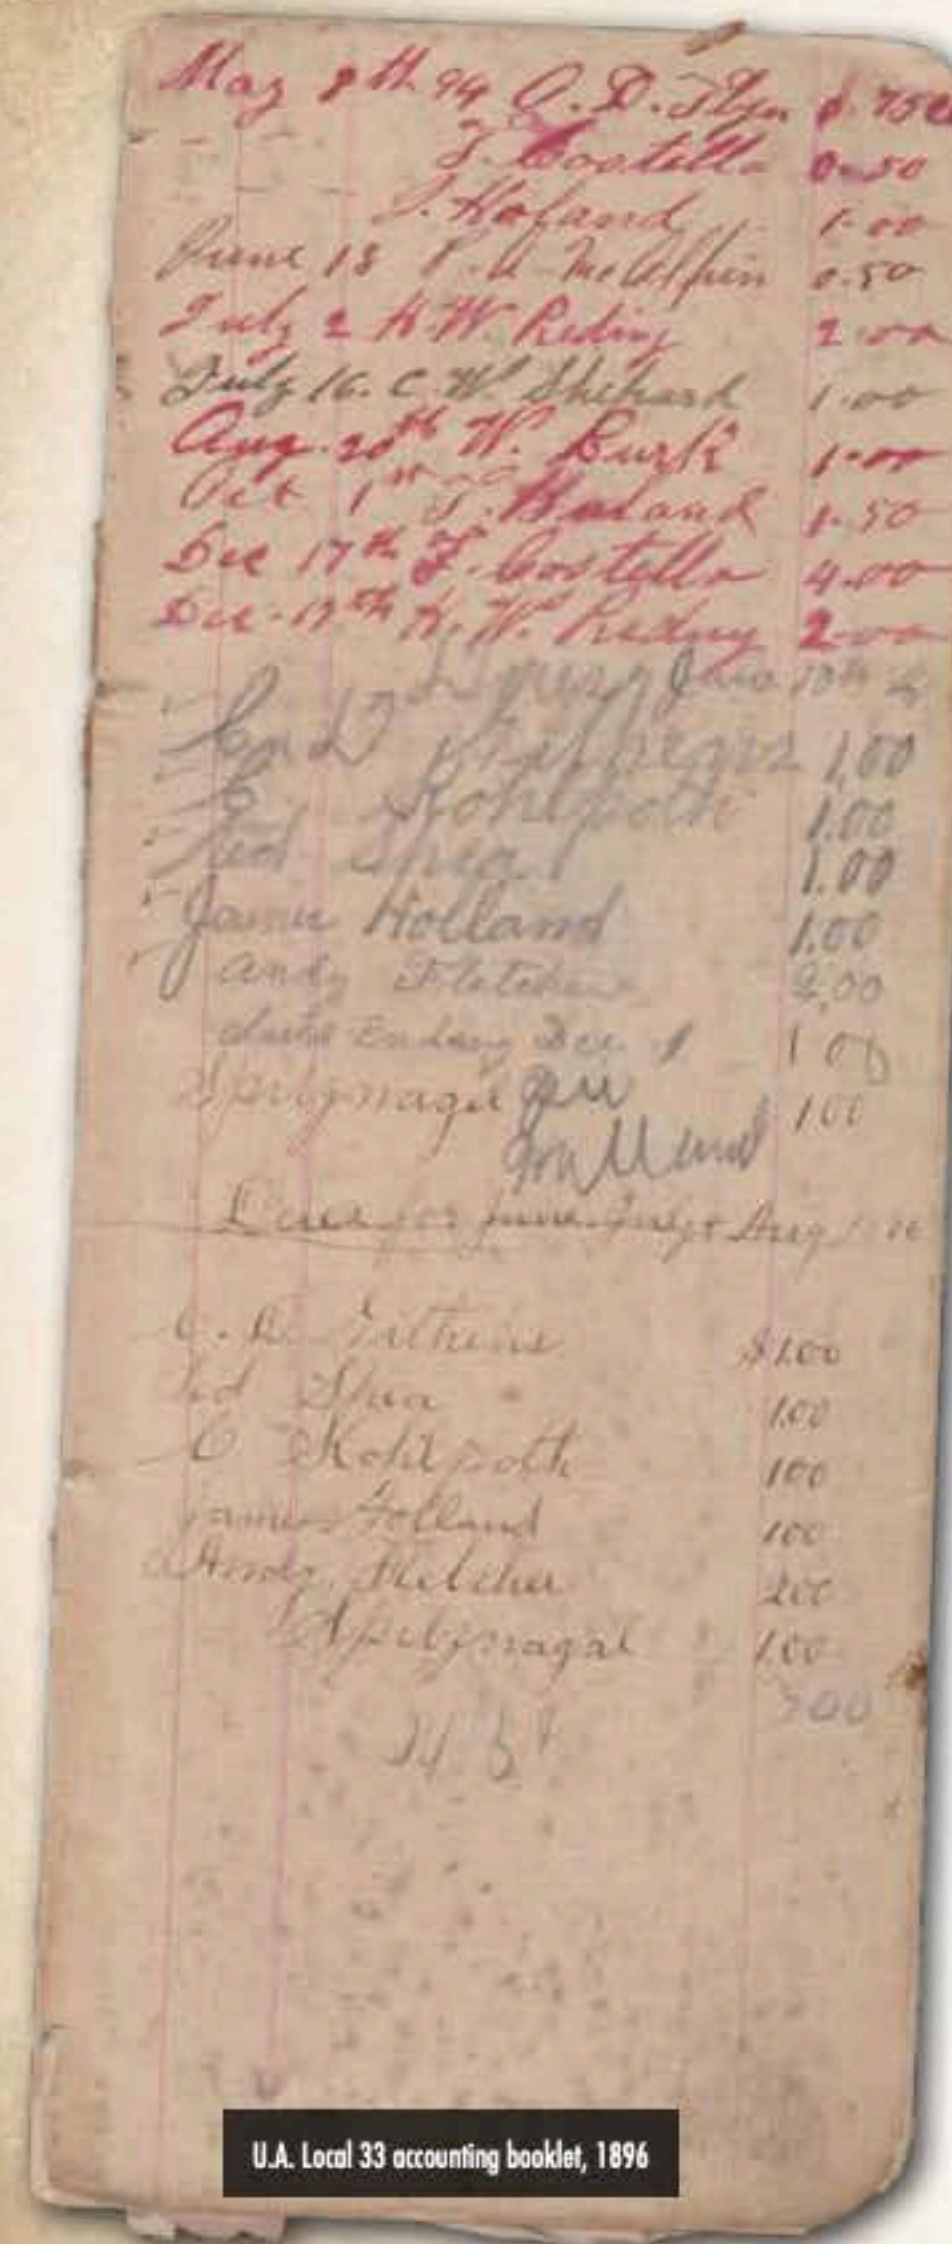 May 8th 94 O. D. Flyn $.75
" " " T. Costello 0.50
" " " J. Holand 1.00
June 18 P. A. McAlpin 0.50
July 2 H. W. Reding 2.00
July 16. C. W. Shehard 1.00
Aug. 20th W. Burk 1.00
Oct 1st J. Holand 1.50
Dec 17th T. Costello 4.00
Dec. 17th H. W. Reding 2.00
June 10th
1.00
C Kohlpoth 1.00
Ted Shea 1.00
James Holland 1.00
Andy Fletcher 2.00
dues Ending Dec 1 1 00
1.00
Dues for June July & Aug
C. D. $1.00
Ted Shea 1.00
C Kohlpoth 100
James Holland 100
Andy Fletcher 200
1.00
700
U.A. Local 33 accounting booklet, 1896